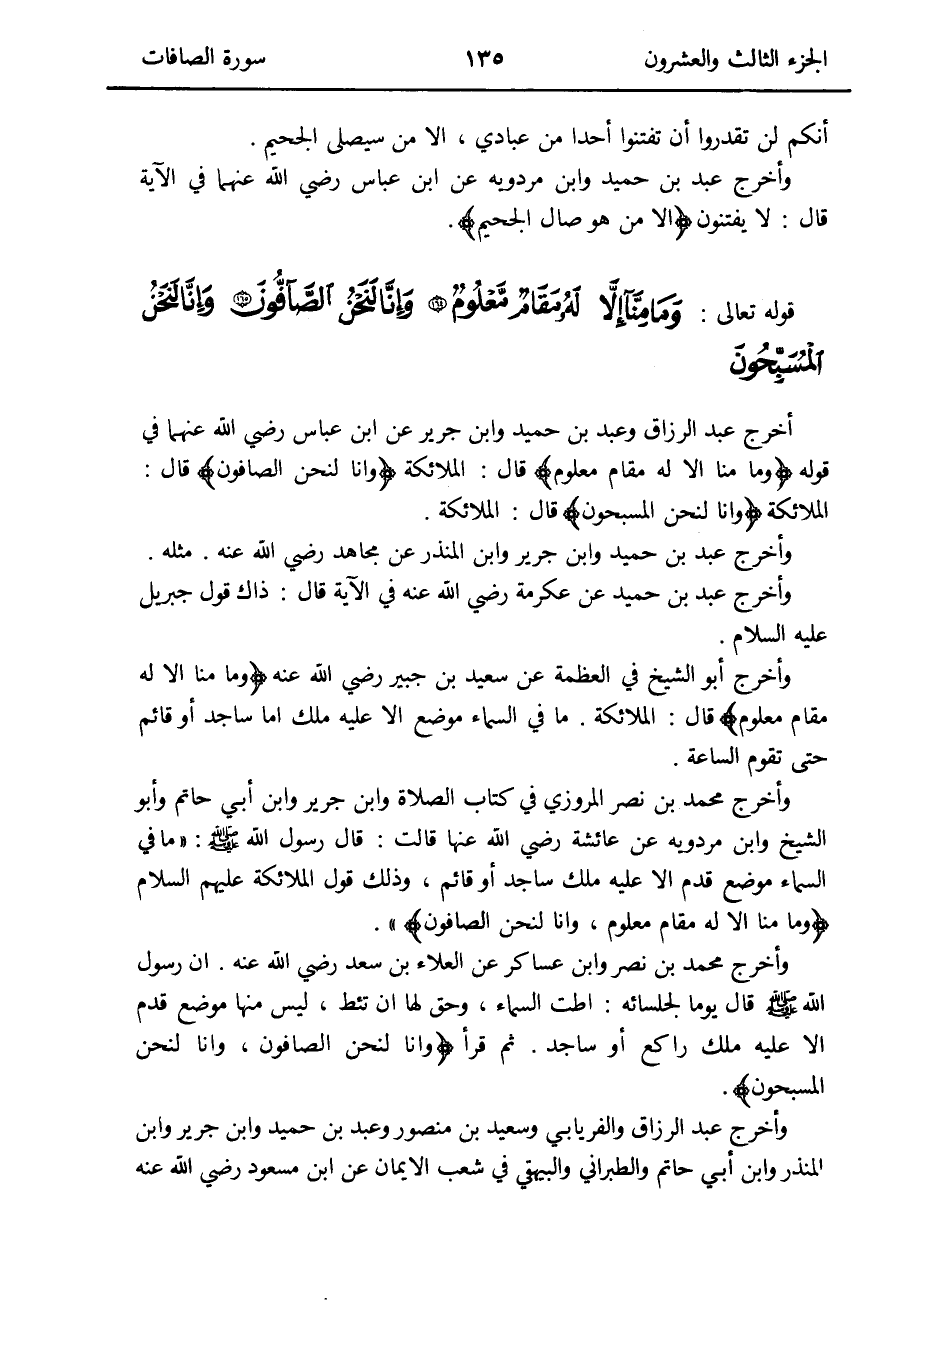 الجزء الثالث والعشرون ١٣٥ سورة الصافات
أنكم لن تقدروا أن تفتنوا أحدا من عبادي ، الا من سيصلى الجحيم .
وأخرج عبد بن حميد وابن مردويه عن ابن عباس رضي الله عنهما في الآية
قال : لا يفتنون ﴿الا من هو صال الجحيم﴾.
قوله تعالى : وَمَا مِنَّآ إِلَّا لَهُۥ مَقَامٌ مَّعْلُومٌ ﴿١٦٤﴾ وَإِنَّا لَنَحْنُ ٱلصَّآفُّونَ ﴿١٦٥﴾ وَإِنَّا لَنَحْنُ
ٱلْمُسَبِّحُونَ
أخرج عبد الرزاق وعبد بن حميد وابن جرير عن ابن عباس رضي الله عنهما في
قوله ﴿وما منا الا له مقام معلوم﴾ قال : الملائكة ﴿وانا لنحن الصافون﴾ قال :
الملائكة ﴿وانا لنحن المسبحون﴾ قال : الملائكة .
وأخرج عبد بن حميد وابن جرير وابن المنذر عن مجاهد رضي الله عنه . مثله .
وأخرج عبد بن حميد عن عكرمة رضي الله عنه في الآية قال : ذاك قول جبريل
عليه السلام .
وأخرج أبو الشيخ في العظمة عن سعيد بن جبير رضي الله عنه ﴿وما منا الا له
مقام معلوم﴾ قال : الملائكة . ما في السماء موضع الا عليه ملك اما ساجد أو قائم
حتى تقوم الساعة .
وأخرج محمد بن نصر المروزي في كتاب الصلاة وابن جرير وابن أبي حاتم وأبو
الشيخ وابن مردويه عن عائشة رضي الله عنها قالت : قال رسول الله ﷺ : « ما في
السماء موضع قدم الا عليه ملك ساجد أو قائم ، وذلك قول الملائكة عليهم السلام
﴿وما منا الا له مقام معلوم ، وانا لنحن الصافون﴾ » .
وأخرج محمد بن نصر وابن عساكر عن العلاء بن سعد رضي الله عنه . ان رسول
الله ﷺ قال يوما لجلسائه : اطت السماء ، وحق لها ان تئط ، ليس منها موضع قدم
الا عليه ملك راكع أو ساجد . ثم قرأ ﴿وانا لنحن الصافون ، وانا لنحن
المسبحون﴾.
وأخرج عبد الرزاق والفريابي وسعيد بن منصور وعبد بن حميد وابن جرير وابن
المنذر وابن أبي حاتم والطبراني والبيهقي في شعب الايمان عن ابن مسعود رضي الله عنه